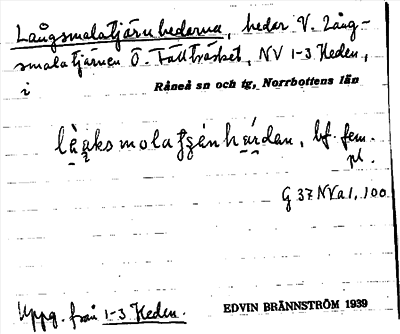 Långsmalatjärnhedarna, hedar V. Lång-
smalatjärnen Ö. Fällträsket, NV 1-3 Heden,
i Råneå sn och tg, Norrbottens län
bf. fem.
pl.
G 37 NVa1, 100
Uppg. från 1-3 Heden.
EDVIN BRÄNNSTRÖM 1939